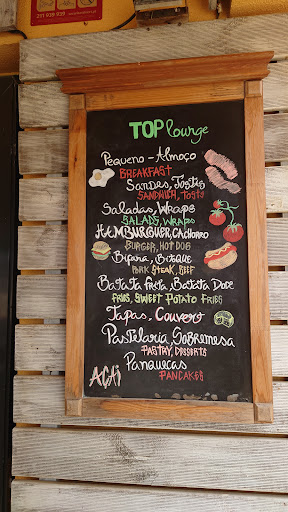 211 939 939
TOP lounge
Pequeno-Almoço
BREAKFAST
Sandes, Tostis
SANDWICH, Tosts
Saladas, Wraps
SALADS, WRAPS
HAMBURGUER, CACHORRO
BURGER, HOT DOG
Bifana, Bitoque
PORK STEAK, BEEF
Batata frita, Batata Doce
FRIES, SWEET POTATO FRIES
Tapas, Couvero
Pastelaria, Sobremesa
PASTRY, DESSERTS
Panquecas
PANCAKES
AÇAÍ